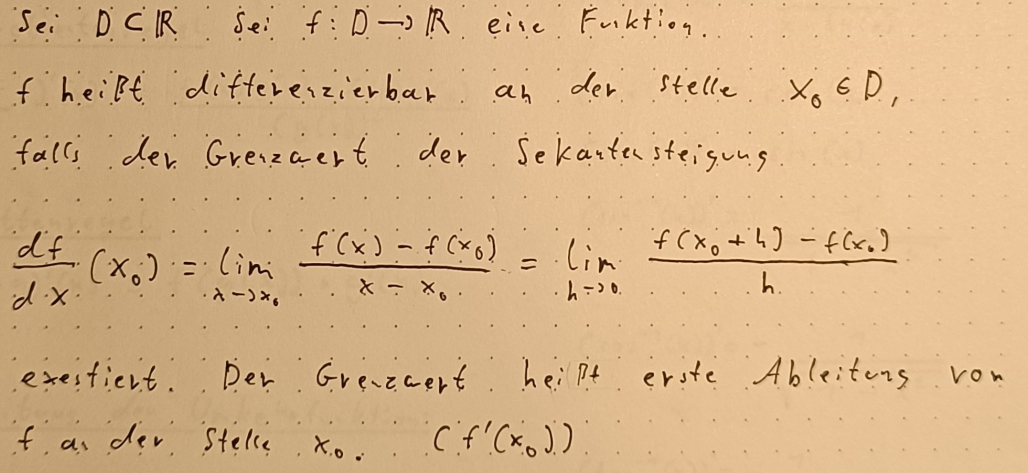 Sei D ⊂ ℝ. Sei f: D → ℝ eine Funktion.
f heißt differenzierbar an der Stelle x₀ ∈ D,
falls der Grenzwert der Sekantensteigung
df/dx (x₀) = lim_{x→x₀} (f(x) - f(x₀))/(x - x₀) = lim_{h→0} (f(x₀ + h) - f(x₀))/h
exestiert. Der Grenzwert heißt erste Ableitung von
f an der Stelle x₀. (f'(x₀))